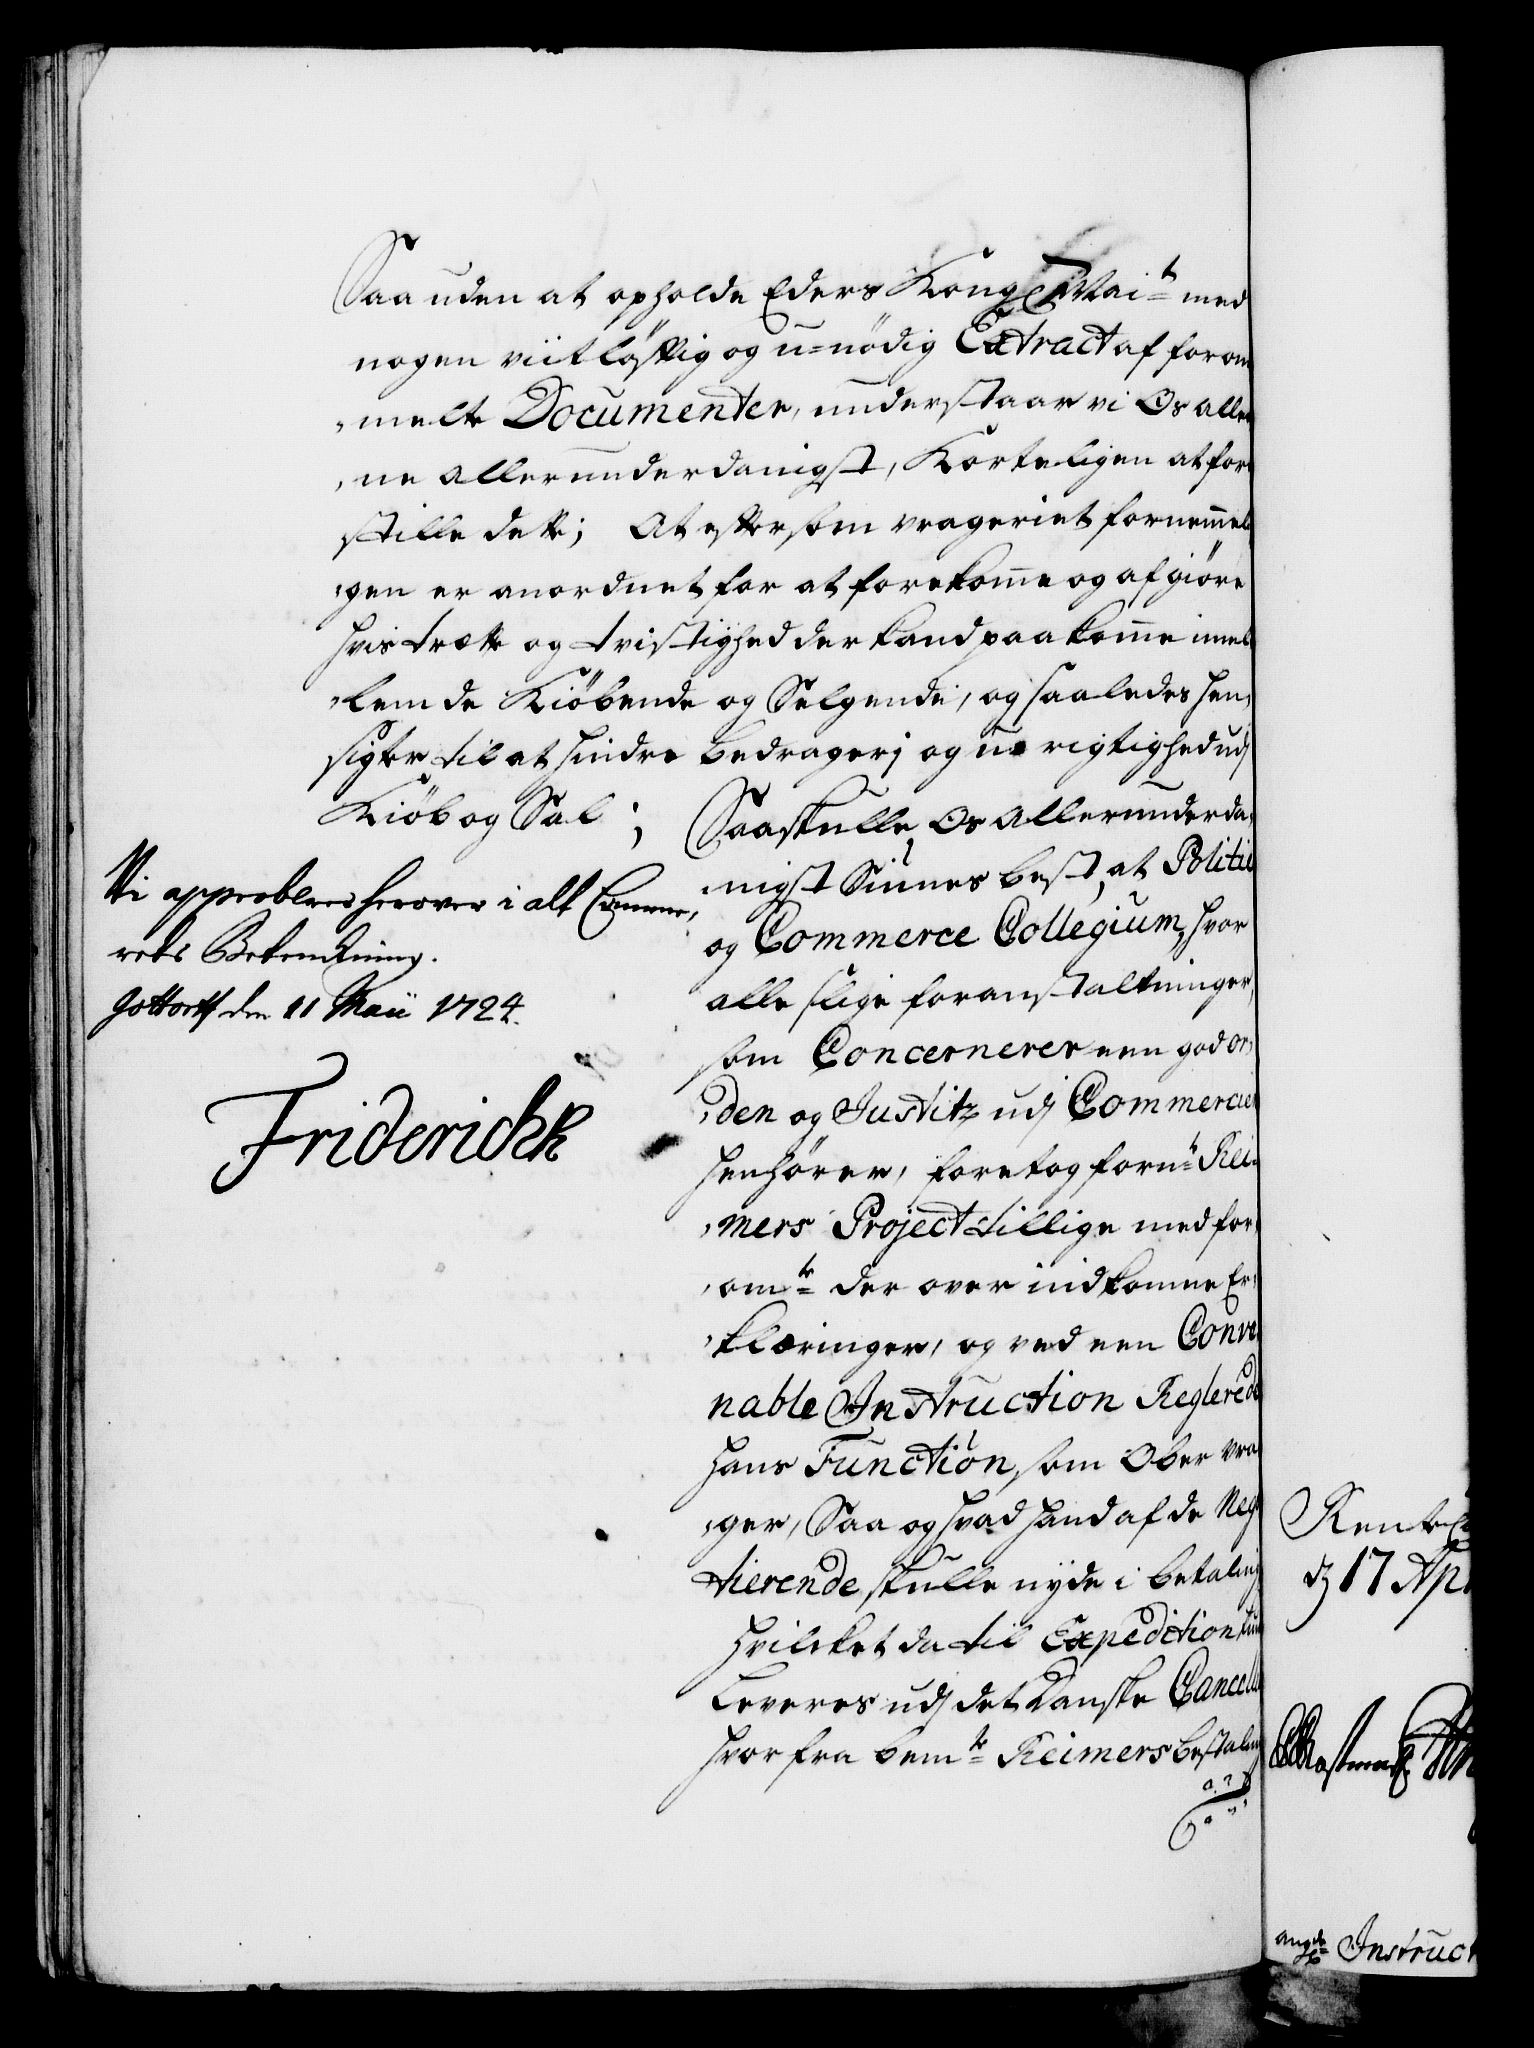 Saa uden at opholde Eders Kongl Mai:t med
nogen viitløftig og u=nödig Extract af forom
„melte Documenter, understaar vi Os alle
„ne allerunderdanigst, Korteligen at for
stille dette; At eftersom vrageriet fornemmel
„gen er anordnet for at forekomme og afgiöre
hvis trætte og tvistighed der kand paakomme imel
„lem de Kiöbende og Selgende, og saaledes hen,
sigter til at hindre bedragerj og urigtighed udj
Kiöb og Sal; Saa skulle Os Allerunderda,
nigst Siunes best, at Politie
og Commerce Collegium, hvor
alle slige foranstaltninger,
som Concernerer een god or,
„den og Justitz udj Commercien
henhører, foretog forn:te Rei=
„mers Project tillige med for
„om:te der over indkomne Er,
„klæringer, og ved een Conve
nable Instruction Reglerede
hans Function, som Ober Vra
„ger, Saa og hvad hand af de Neg
tierende skulle nyde i betaling
hvilcket da til Expedition kun
leveres udj det Danske Cancelli
hvorfra bem:te Reimers bestaling
Vi approberer herover i alt Camme,
rets Betænkning.
Gottorff den 11 Maii 1724.
FriderichR
Rente
d 17 Apr
Instruct